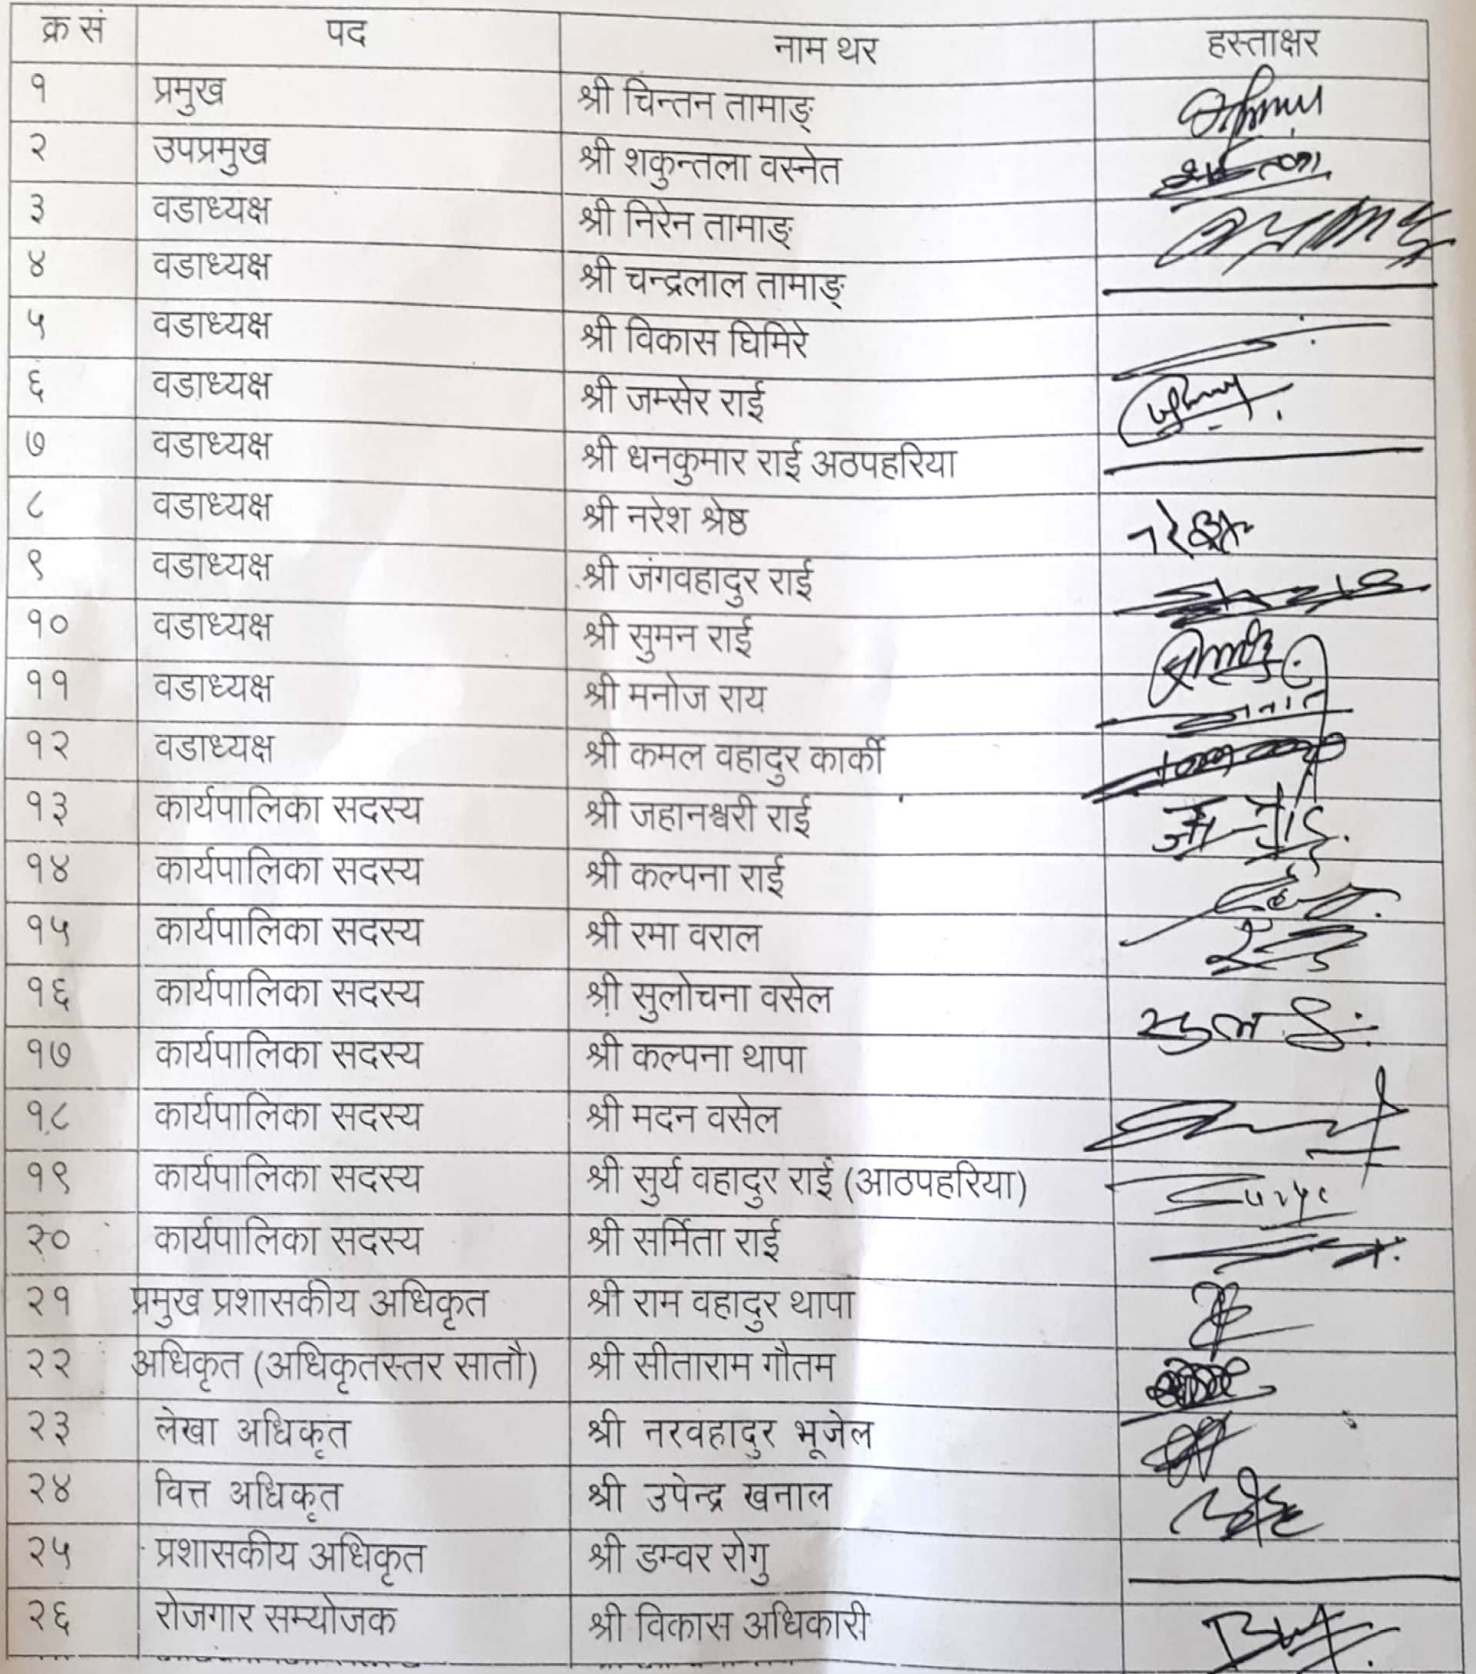 क्र सं पद नाम थर हस्ताक्षर
१ प्रमुख श्री चिन्तन तामाङ्
२ उपप्रमुख श्री शकुन्तला वस्नेत
३ वडाध्यक्ष श्री निरेन तामाङ्
४ वडाध्यक्ष श्री चन्द्रलाल तामाङ्
५ वडाध्यक्ष श्री विकास घिमिरे
६ वडाध्यक्ष श्री जम्सेर राई
७ वडाध्यक्ष श्री धनकुमार राई अठपहरिया
८ वडाध्यक्ष श्री नरेश श्रेष्ठ नरेश
९ वडाध्यक्ष श्री जंगवहादुर राई
१० वडाध्यक्ष श्री सुमन राई
११ वडाध्यक्ष श्री मनोज राय
१२ वडाध्यक्ष श्री कमल वहादुर कार्की
१३ कार्यपालिका सदस्य श्री जहानश्वरी राई
१४ कार्यपालिका सदस्य श्री कल्पना राई
१५ कार्यपालिका सदस्य श्री रमा वराल
१६ कार्यपालिका सदस्य श्री सुलोचना वसेल
१७ कार्यपालिका सदस्य श्री कल्पना थापा
१८ कार्यपालिका सदस्य श्री मदन वसेल
१९ कार्यपालिका सदस्य श्री सुर्य वहादुर राई (आठपहरिया)
२० कार्यपालिका सदस्य श्री सर्मिता राई
२१ प्रमुख प्रशासकीय अधिकृत श्री राम वहादुर थापा
२२ अधिकृत (अधिकृतस्तर सातौ) श्री सीताराम गौतम
२३ लेखा अधिकृत श्री नरवहादुर भूजेल
२४ वित्त अधिकृत श्री उपेन्द्र खनाल
२५ प्रशासकीय अधिकृत श्री डम्वर रोगु
२६ रोजगार सम्योजक श्री विकास अधिकारी